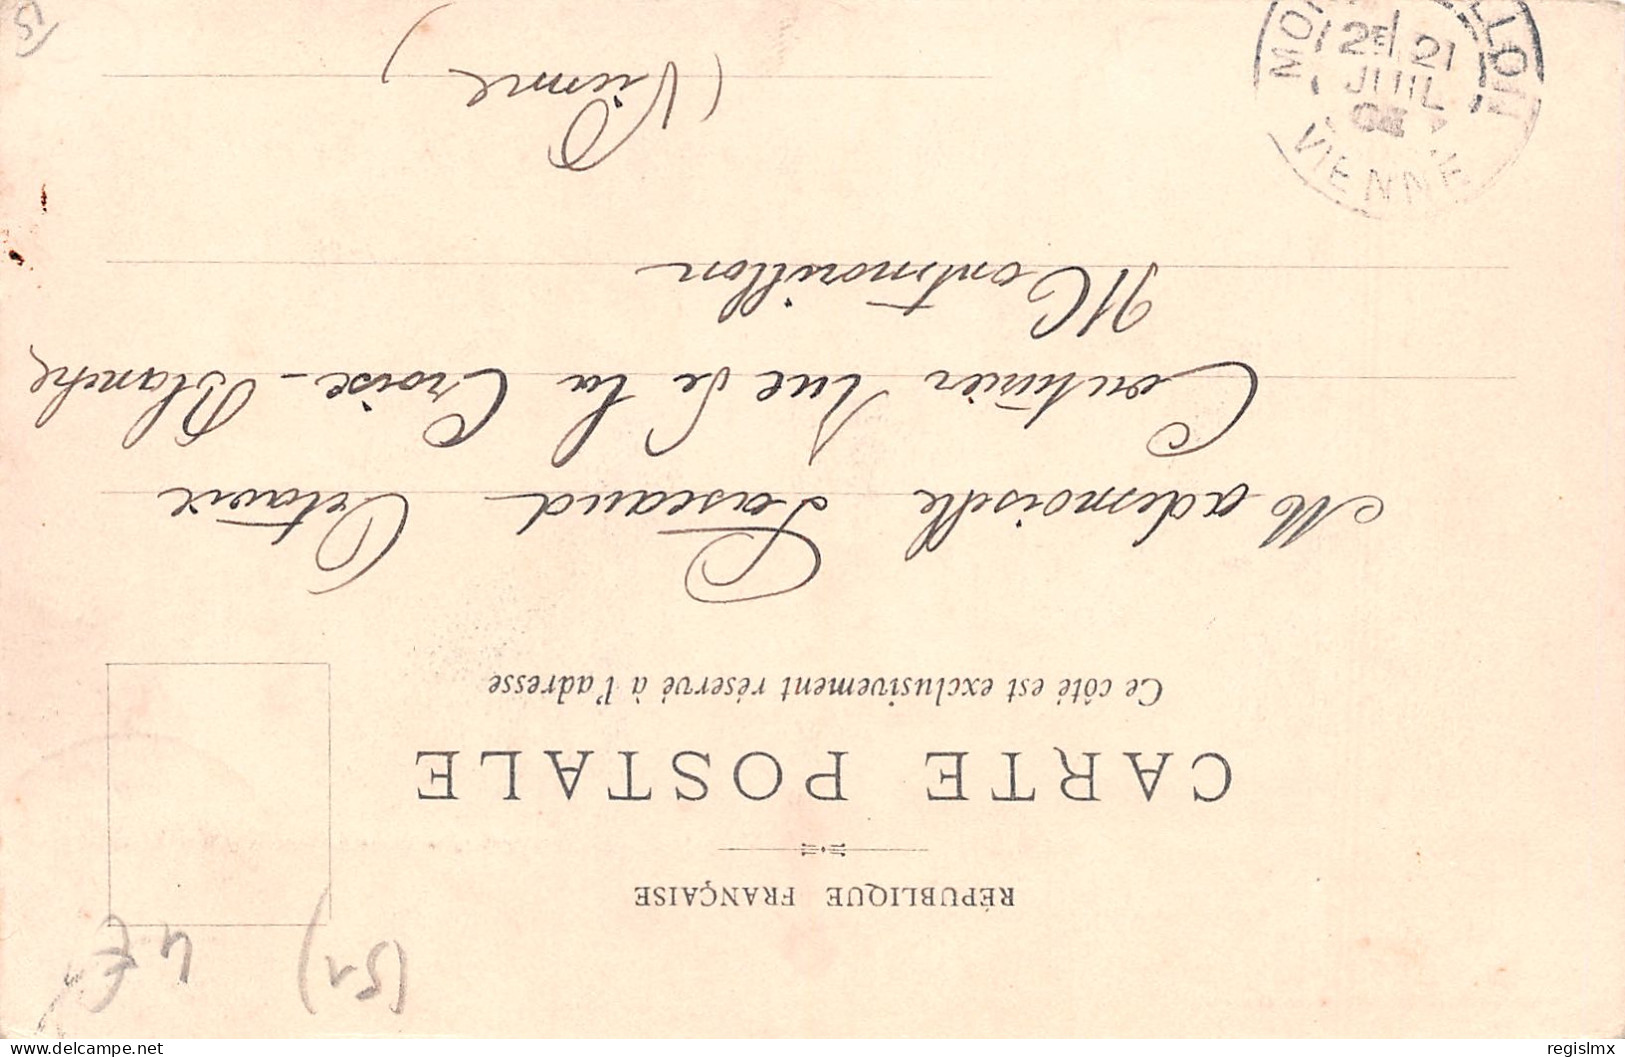 RÉPUBLIQUE FRANÇAISE
CARTE POSTALE
Ce côté est exclusivement réservé à l'adresse
Mademoiselle Octavie
Couturier Rue de la Croise-Blanche
Montmorillon
(Vienne)
(51)
4€
21
JUIL
VIENNE
delcampe.net
regislmx